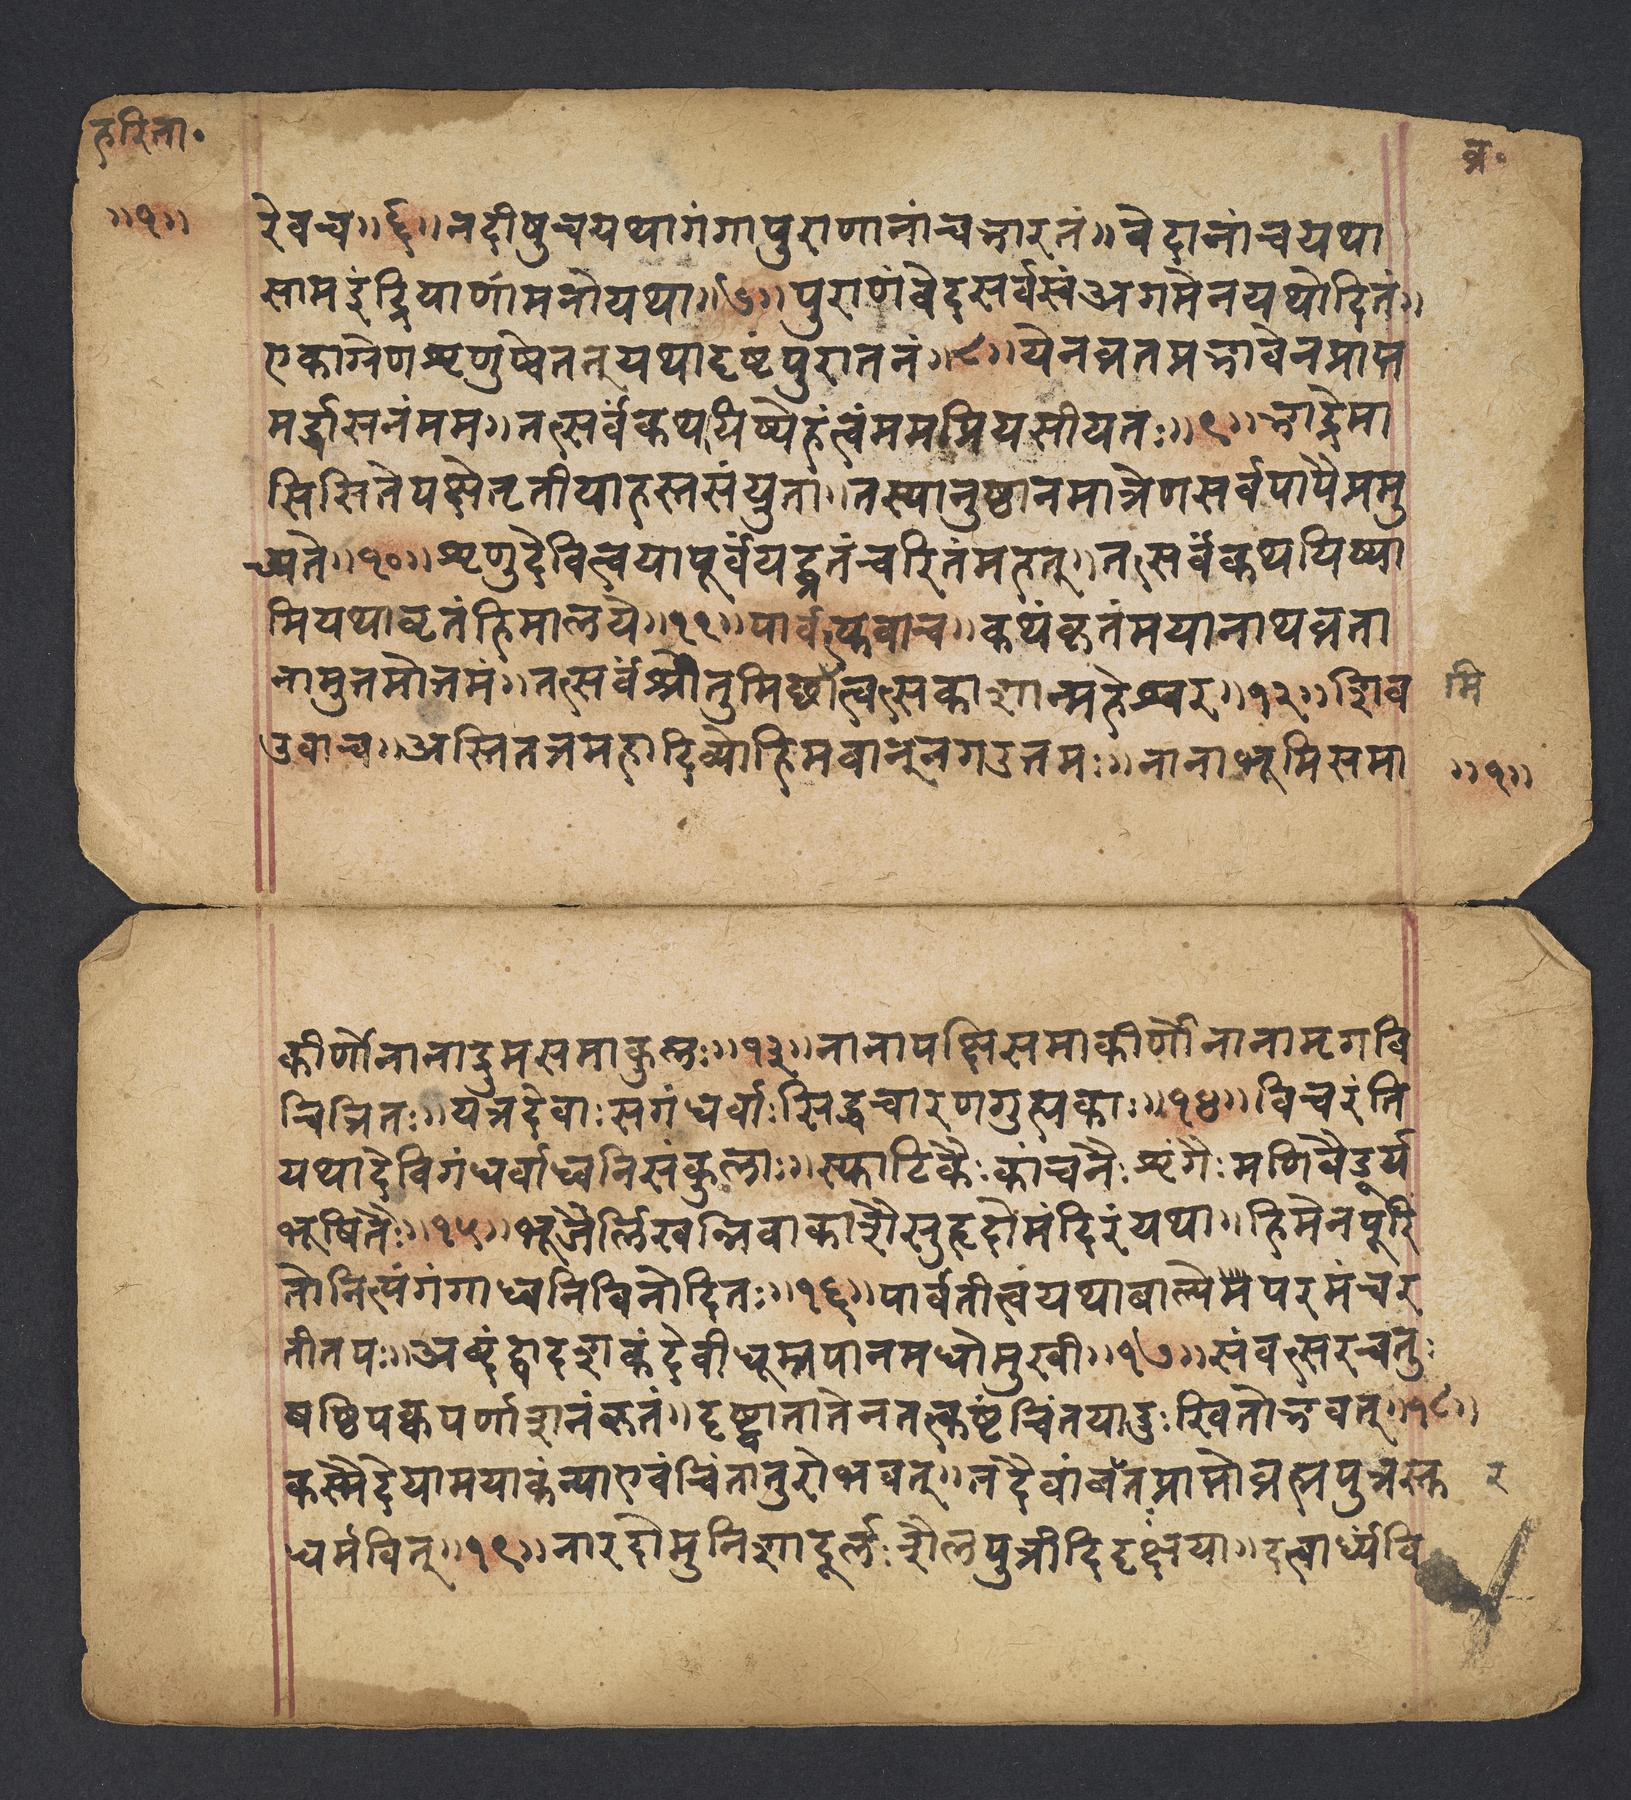 हरिता॰
व्र॰
॥१॥
रेवच॥६॥नदीषुचयथागंगापुराणानांचभारतं॥वेदानांचयथा
सामइंद्रियाणांमनोयथा॥७॥पुराणंवेदसर्वस्वंअगमेनयथोदितं॥
एकाग्रेणशृणुष्वेतत्यथादृष्टंपुरातनं॥८॥येनव्रतप्रभावेनप्राप्त
मर्द्धासनंमम॥तत्सर्वंकथयिष्येहंत्वंममप्रियसीयतः॥९॥भाद्रेमा
सिसितेपक्षेतृतीयाहस्तसंयुता॥तस्यानुष्ठानमात्रेणसर्वपापैप्रमु
च्यते॥१०॥शृणुदेवित्वयापूर्वंयद्व्रतंचरितंमहत्॥तत्सर्वंकथयिष्या
मियथावृतंहिमालये॥११॥पार्वत्युवाच॥कथंकृतंमयानाथव्रता
नामुतमोत्तमं॥तत्सर्वंश्रोतुमिछामित्वत्सकाशान्महेश्वर॥१२॥शिव
मि
उवाच॥अस्तितत्रमहादिव्योहिमवान्नगउत्तमः॥नानाभूमिसमा
॥१॥
कीर्णोनानाद्रुमसमाकुलः॥१३॥नानापक्षिसमाकीर्णोनानामृगवि
चित्रितः॥यत्रदेवाःसगंधर्वाःसिद्धचारणगुह्यकाः॥१४॥विचरंति
यथादेविगंधर्वाध्वनिसंकुलाः॥स्फाटिकैःकांचनैःशृंगैःमणिवैडूर्य
भूषितैः॥१५॥भूजैर्लिखन्निवाकाशैसुहृदोमंदिरंयथा॥हिमेनपूरि
तोनित्यंगंगाध्वनिविनोदितः॥१६॥पार्वतीत्वंयथाबाल्येपरमंचर
तीतपः॥अब्दंद्वादशकंदेवीधूम्रपानमधोमुखी॥१७॥संवत्सरचतुः
षष्ठिपक्वपर्णाशनंकृतं॥दृष्ट्वातातेनतत्कष्टंचिंतयादुःखितोभवत्॥१८॥
कस्मैदेयामयाकंन्याएवंचिंतातुरोभवत्॥तदैवांबंतप्राप्तोब्रह्मपुत्रस्तु
र
धर्मवित्॥१९॥नारदोमुनिशार्दूलःशैलपुत्रीदिदृक्षया॥दत्वार्घ्यंवि